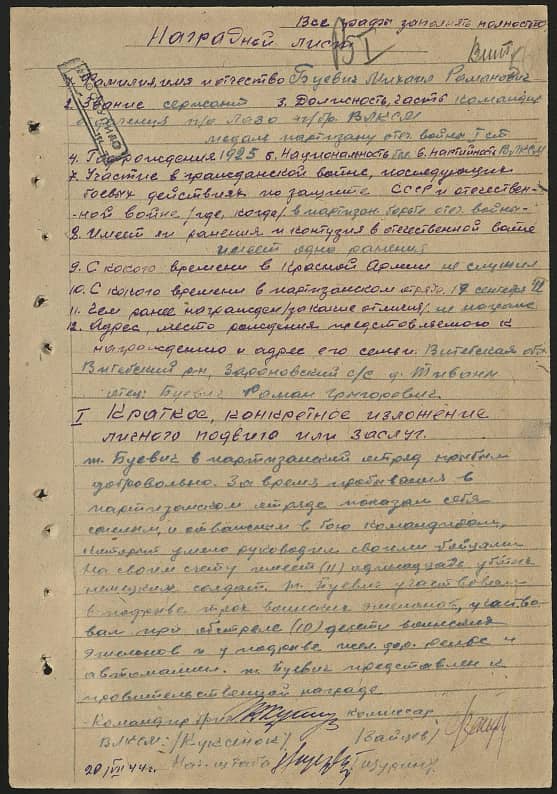 Все графы заполнять полностью
Наградной лист
1. Фамилия, имя и отчество Буевич Михаил Романович
2. Звание сержант 3. Должность, часть командир
отделения п/о Лазо п/бр. ВЛКСМ
медаль партизану отеч. войны I ст
4. Год рождения 1925 5. Национальность бел 6. Партийность ВЛКСМ
7. Участие в гражданской войне, последующих
боевых действиях по защите СССР и отечествен-
-ной войне /где, когда/ в партизан. борьбе отеч. войны-
8. Имеет ли ранения и контузия в отечественной войне
имеет одно ранение
9. С какого времени в Красной Армии не служил
10. С какого времени в партизанском отряде 17 сентября
11. Чем ранее награжден /за какие отличия/. не награжд
12. Адрес, место рождения представляемого к
награждению и адрес его семьи. Витебская обл
Витебский р-н, Зароновский с/с д.
отец: Буевич Роман Григорович.
I Краткое, конкретное изложение
личного подвига или заслуг.
т. Буевич в партизанский отряд прибыл
добровольно. За время пребывания в
партизанском отряде показал себя
смелым, и отважным в бою командиром,
умело руководил своими бойцами
На своем счету имеет (11) одиннадцать убитых
немецких солдат. Т. Буевич участвовал
в подрыве воинских эшелонов, участво
вал при обстреле (10) десяти воинских
эшелонов и у подрыве жел. дор. рельс и
автомашин. т. Буевич представлен к
правительственной награде
Командир п/бр Комиссар
ВЛКСМ /Куксенок/ /Зайцев/
20/VII 44 г. Нач. штаба